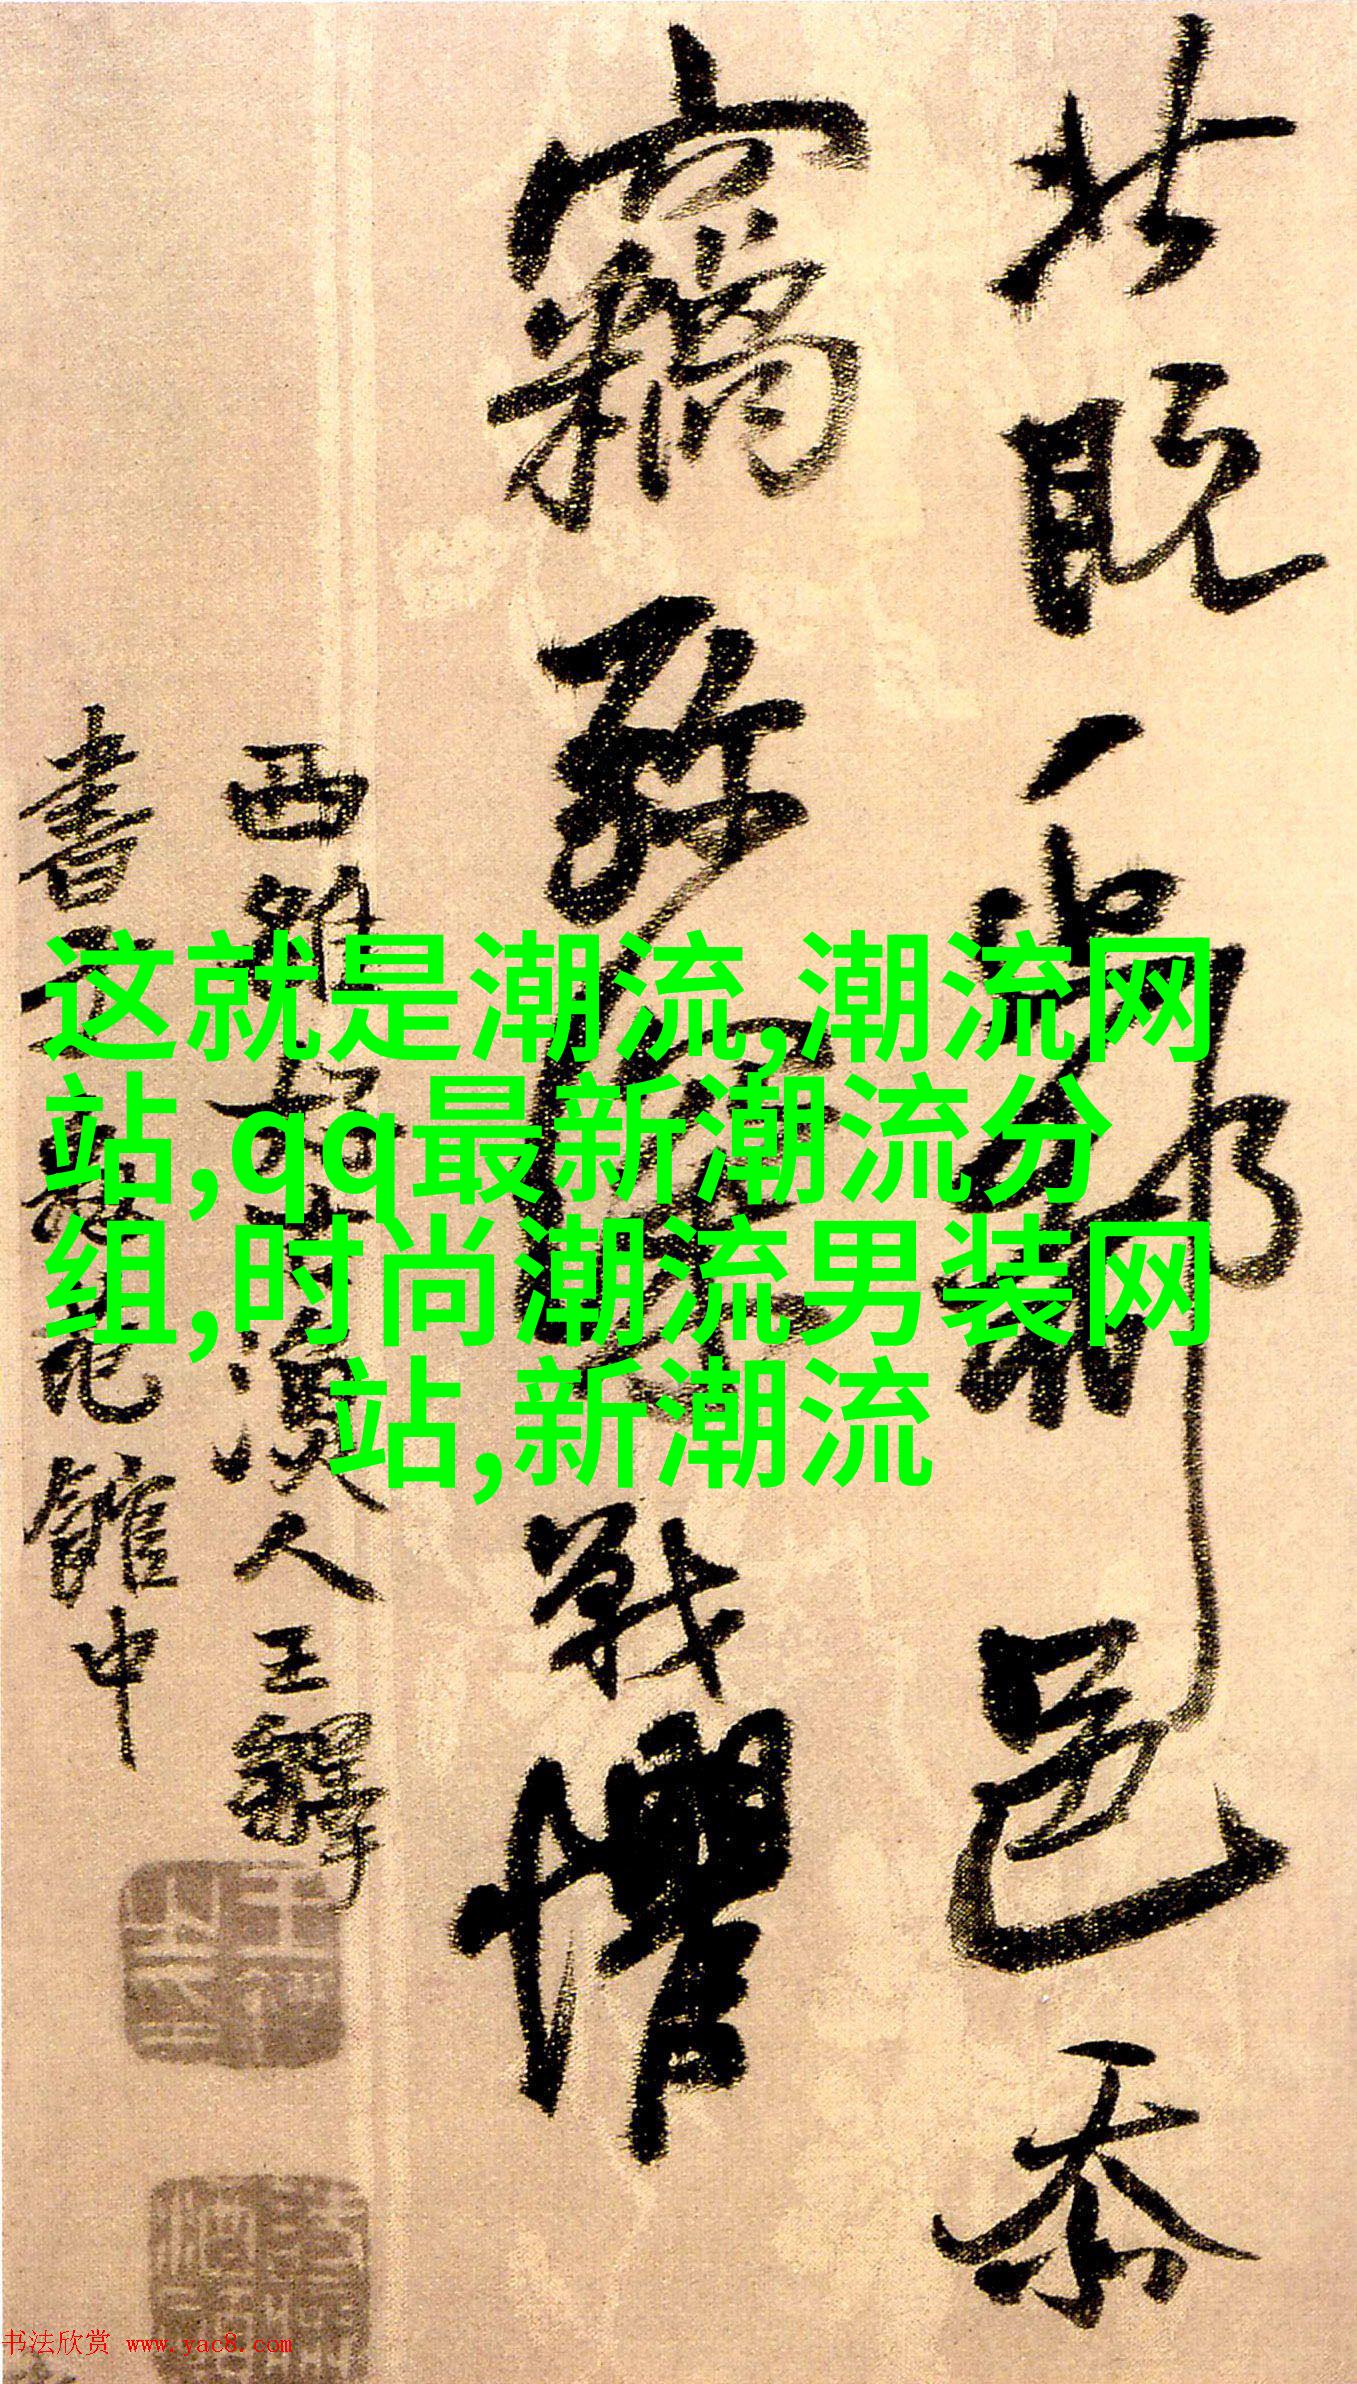 既一鄙邑忝
竊弥深戰懼
西雒漁人王鐸
書于花館中
这就是潮流,潮流网
站,qq最新潮流分
组,时尚潮流男装网
站,新潮流
书法欣赏 www.yac8.com